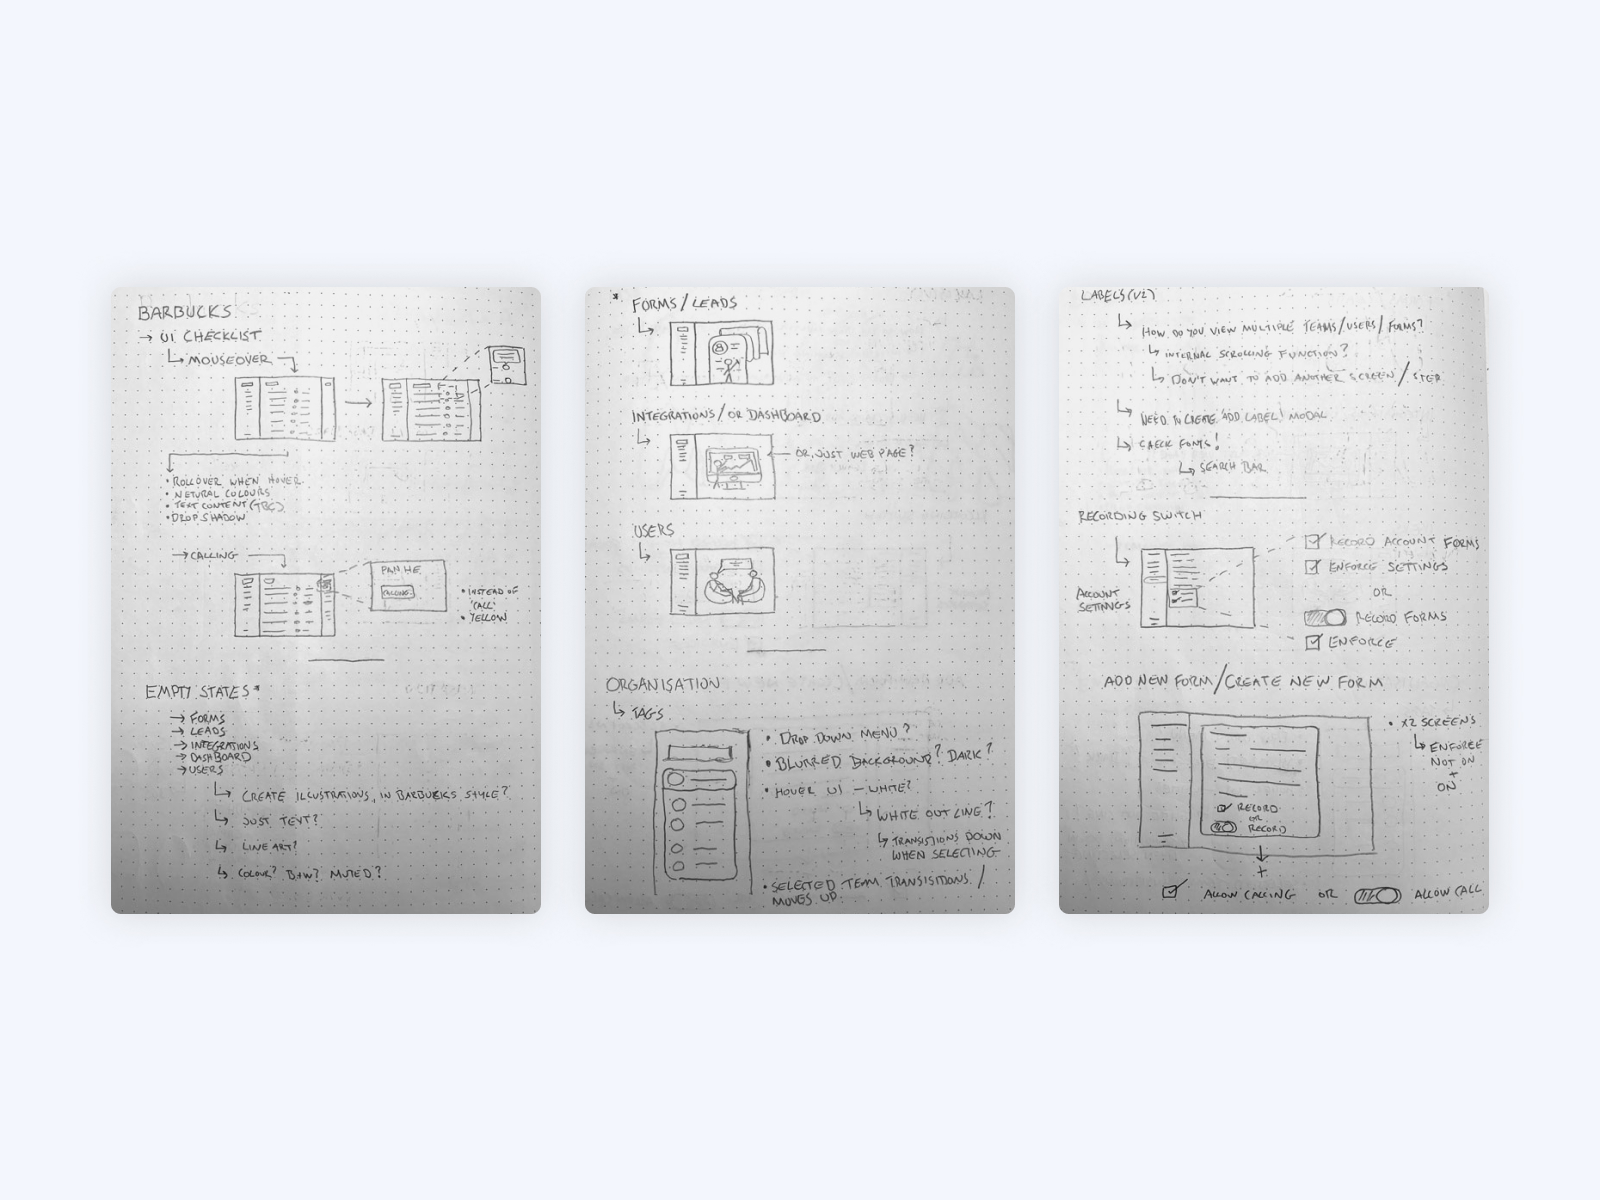 BARBUCKS
→ UI CHECKLIST
↳ MOUSEOVER
• ROLLOVER WHEN HOVER
• NETURAL COLOURS
• TEXT CONTENT (TBC)
• DROP SHADOW
→ CALLING
CALLING
• INSTEAD OF
'CALL'
• YELLOW
EMPTY STATES*
→ FORMS
→ LEADS
→ INTEGRATIONS
→ DASHBOARD
→ USERS
↳ CREATE ILLUSTRATIONS, IN BARBUCKS STYLE?
↳ JUST TEXT?
↳ LINE ART?
↳ COLOUR? B+W? MUTED?
* FORMS/LEADS
INTEGRATIONS/OR DASHBOARD
OR, JUST WEB PAGE?
USERS
ORGANISATION
↳ TAGS
• DROP DOWN MENU?
• BLURRED BACKGROUND? DARK?
• HOVER UI - WHITE?
↳ WHITE OUTLINE?
↳ TRANSISTIONS DOWN
WHEN SELECTING
• SELECTED TEAM TRANSISITIONS /
MOVES UP.
LABELS (V2)
↳ HOW DO YOU VIEW MULTIPLE TEAMS/USERS/FORMS?
↳ INTERNAL SCROLLING FUNCTION?
↳ DON'T WANT TO ADD ANOTHER SCREEN/STEP
↳ NEED TO CREATE 'ADD LABEL' MODAL
↳ CHECK FONTS!
↳ SEARCH BAR
RECORDING SWITCH
ACCOUNT
SETTINGS
RECORD ACCOUNT FORMS
ENFORCE SETTINGS
OR
RECORD FORMS
ENFORCE
ADD NEW FORM/CREATE NEW FORM
RECORD
OR
RECORD
• X2 SCREENS
↳ ENFORCE
NOT ON
+
ON
+
ALLOW CALLING OR ALLOW CALL